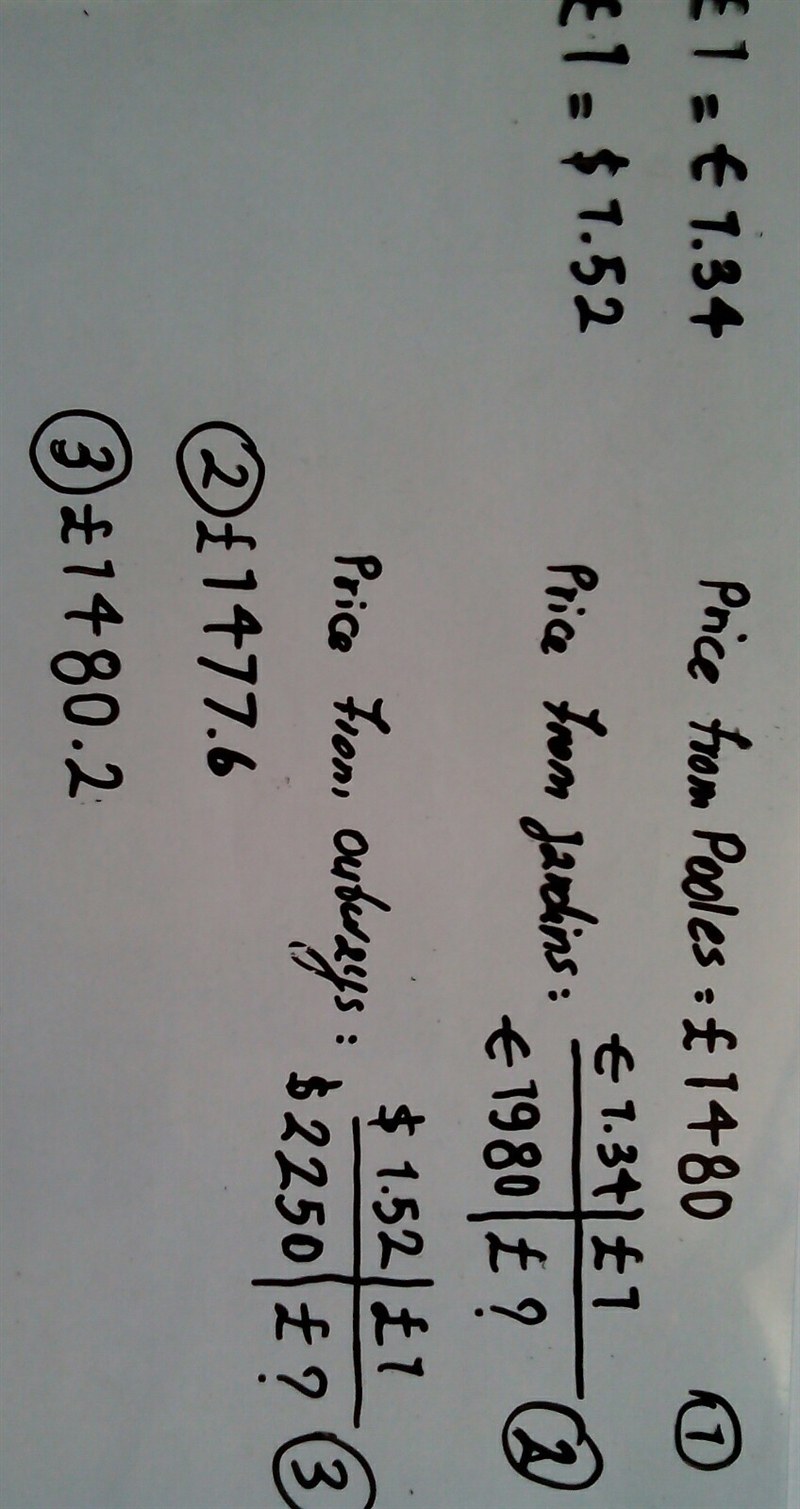 £1 = € 1.34
£1 = $ 1.52
Price from Pooles = £1480 ①
Price from Jardins : € 1.34 | £1
€ 1980 | £ ? ②
Price from ourways : $ 1.52 | £1
$ 2250 | £ ? ③
② £1477.6
③ £1480.2